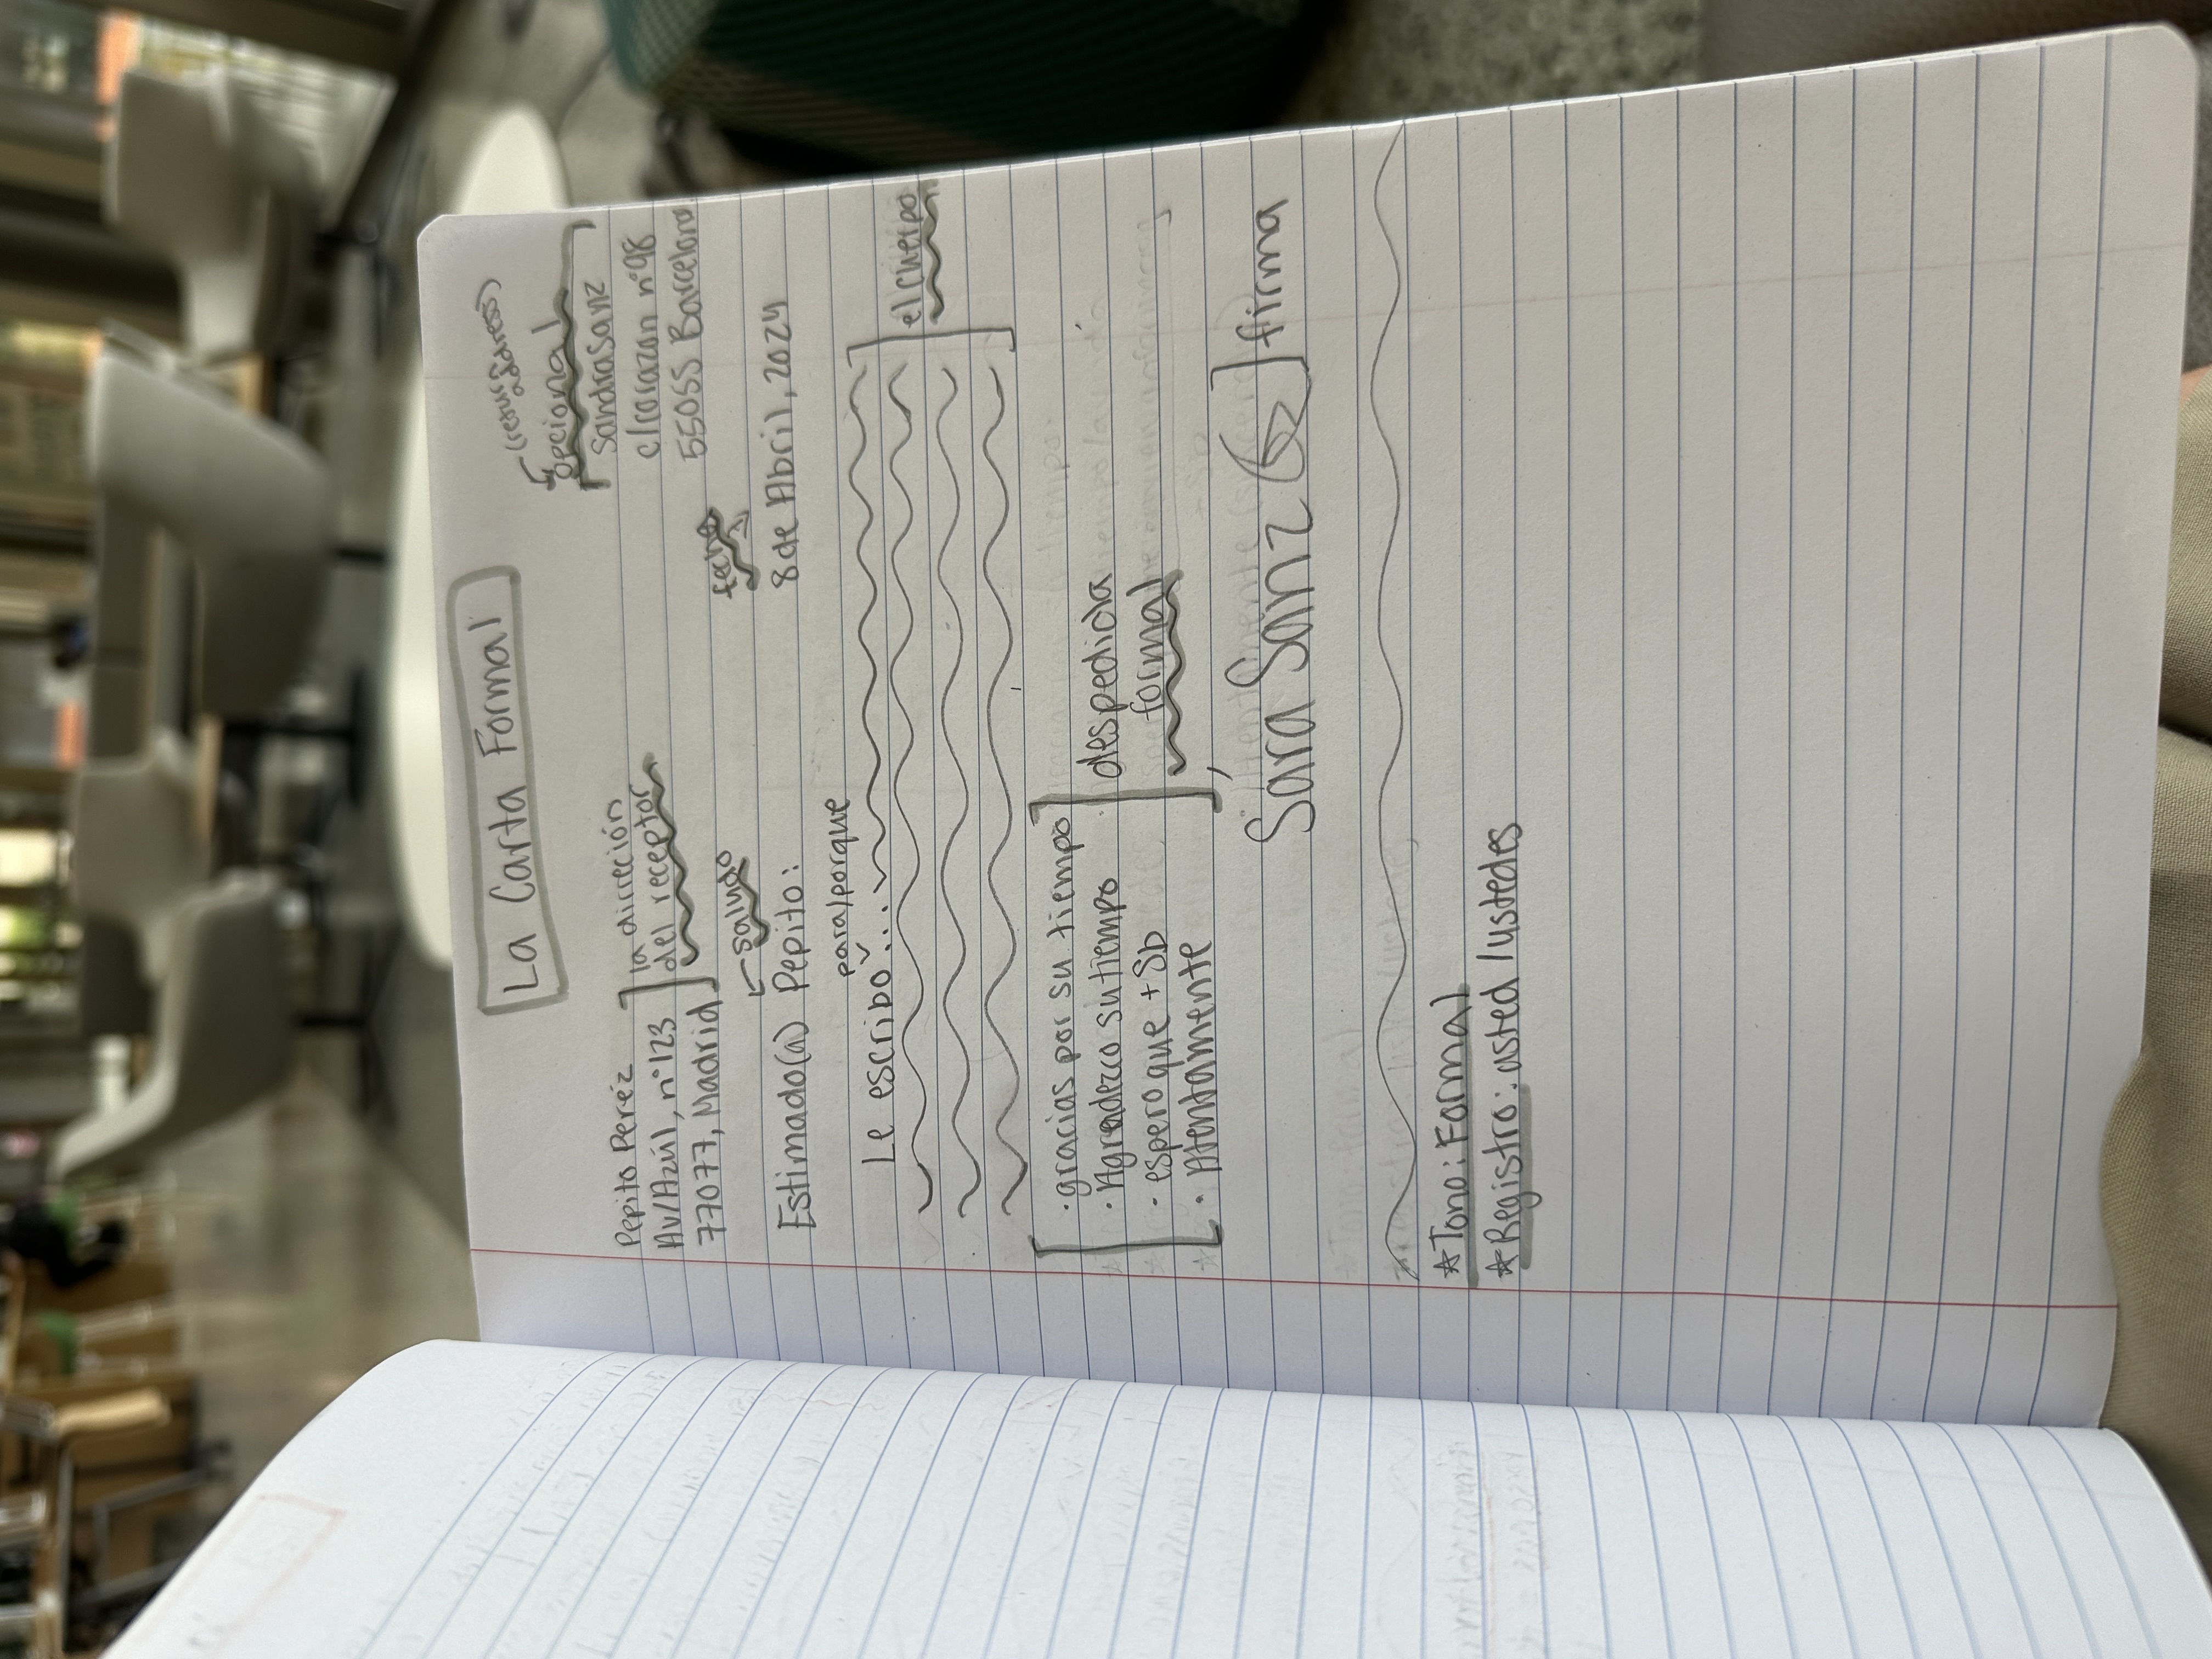 La Carta Formal
(return
address)
opcional
Sandra Sanz
c/corazon nº98
55055 Barcelona
Pepito Peréz
Av/Azúl, nº123
77077, Madrid
la dirreción
del receptor
saludo
fecha
Estimado(a) Pepito:
8 de Abril, 2024
para/porque
Le escribo ...
el cuerpo
·gracias por su tiempo
·Agradezco su tiempo
·espero que + Sb
·Atentamente
despedida
formal
,
Sara Sanz
firma
*Tono: Formal
*Registro: usted /ustedes